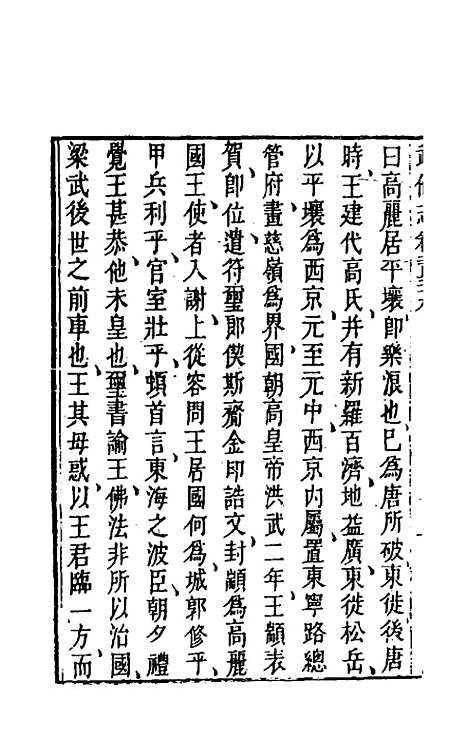 曰高麗居平壤卽樂浪也巳為唐所破東徙後唐
時王建代高氏并有新羅百濟地益廣東徙松岳
以平壤為西京元至元中西京內屬置東寧路總
管府畫慈嶺為界國朝高皇帝洪武二年王顓表
賀卽位遣符璽郎偰斯齎金印誥文封顓為高麗
國王使者入謝上從容問王居國何為城郭修乎
甲兵利乎官室壯乎頓首言東海之波臣朝夕禮
覺王甚恭他未皇也璽書諭王佛法非所以治國
梁武後世之前車也王其毋惑以王君臨一方而